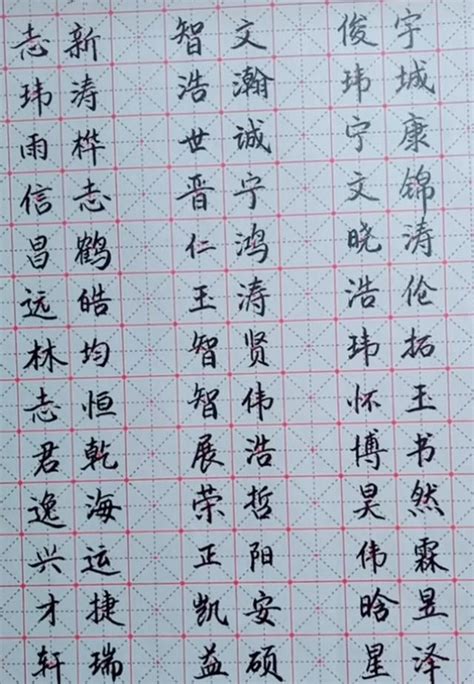 志新 智文 俊宇
玮涛 浩瀚 玮城
雨桦 世诚 宁康
信志 晋宁 文锦
昌鹤 仁鸿 晓涛
远皓 玉涛 浩伦
林均 智贤 玮拓
志恒 智伟 怀玉
君乾 展浩 博书
逸海 荣哲 昊然
兴运 正阳 伟霖
才捷 凯安 晗昱
轩瑞 益硕 星泽